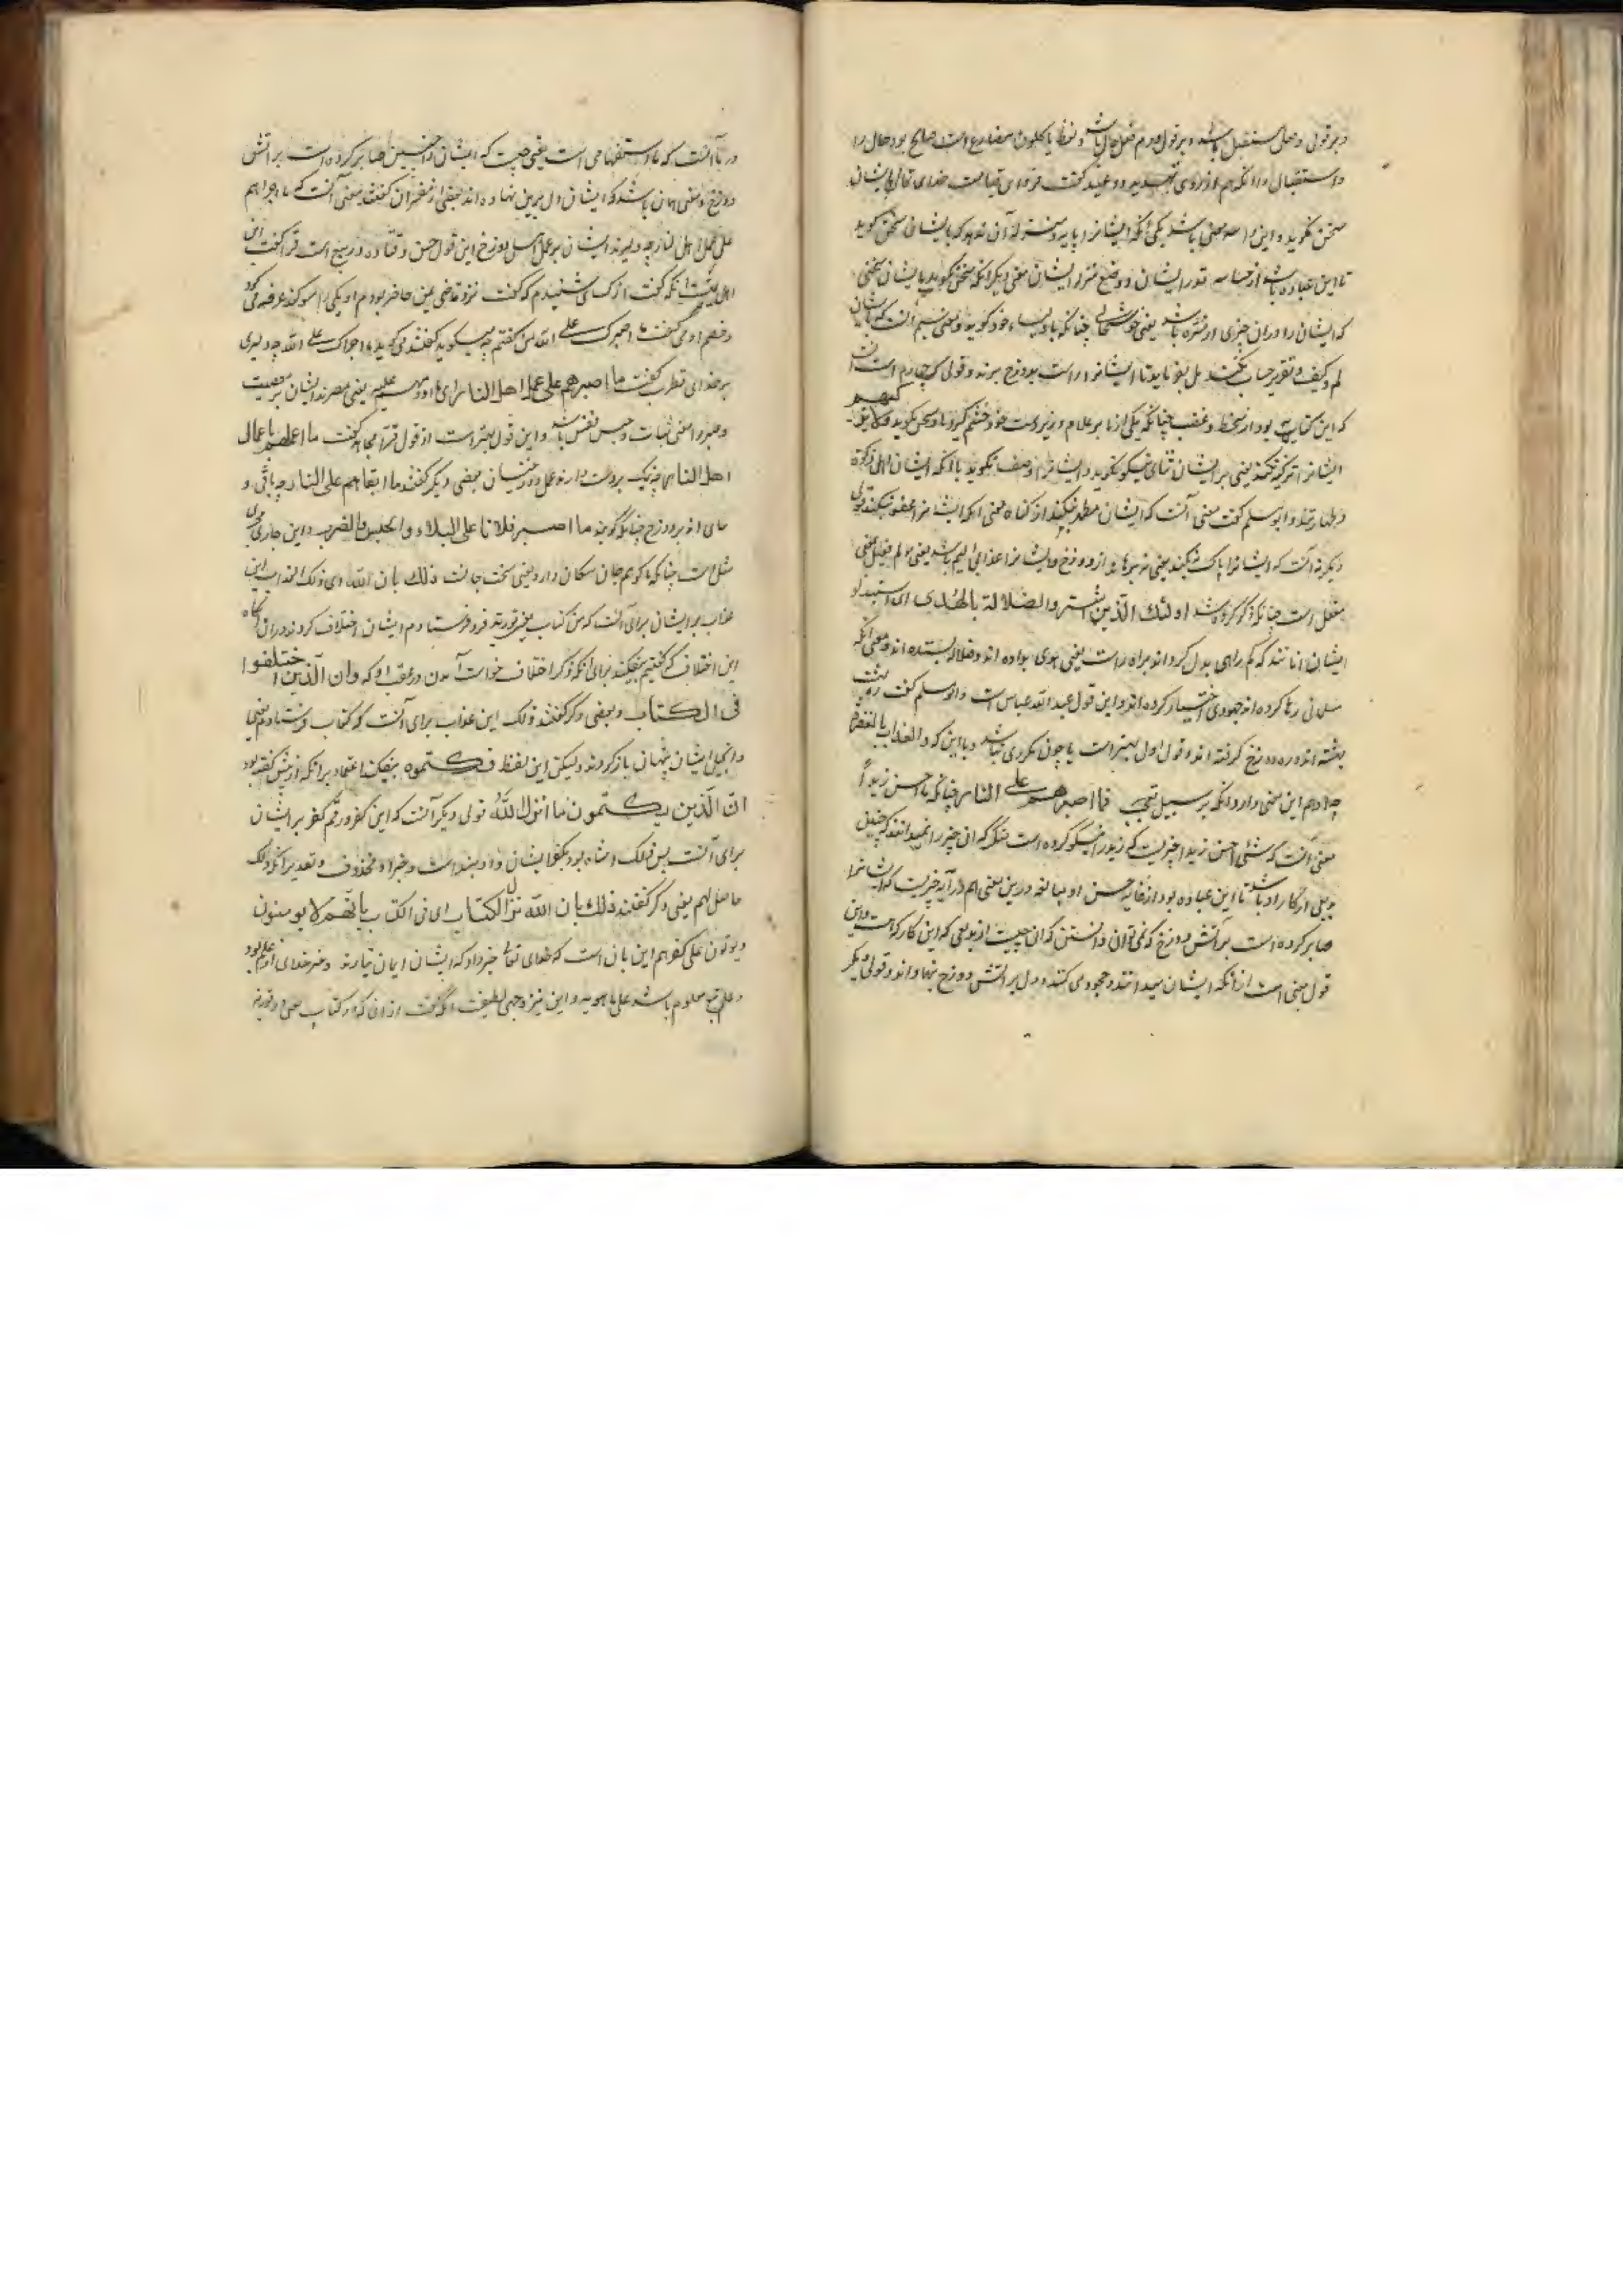 و بر قولی و حال مستقبل باشد و بر قول دوم فعل حال باشد و لفظ یاکلون مضارع است صالح بود حال را
و استقبال را و آنکه هم از روی تهدید و وعید گفت فردای قیامت خدای تعالی با ایشان
سخن نگوید و این را سه معنی باشد یکی آنکه ایشانرا پایه و منزلت آن نبود که با ایشان سخن گوید
تا این عباره باشد از خساسه قدر ایشان و وضع منزله ایشان معنی دیگر آنکه سخن نگوید با ایشان سخنی
که ایشان را در آن چیزی و مسره باشد یعنی خوشحالی چنانکه با اولیاء خود گوید و معنی سیم آنست که با ایشان
لم و کیف و تقریر حساب نکند بل بفرماید تا ایشانرا راست بدوزخ برند و قولی چهارم است
که این کنایت بود از سخط و غضب چنانکه یکی از ما بر غلام و زیردست خود خشم گیرد با او سخن نگوید ولا یزکیهم
ایشانرا تزکیه نکند یعنی بر ایشان ثنای نیکو نگوید و ایشانرا وصف نگوید بآنکه ایشان اهل زکوة
و طهارتند و ابو مسلم گفت معنی آنست که ایشان مطهر نکند از گناه معنی آنکه ایشانرا عفو نکند قولی
دیگر آنست که ایشانرا پاک نکند یعنی نبرهاند از دوزخ و ایشانرا عذابی الیم باشد یعنی مولم فعیل بمعنی
مفعل است چنانکه ذکر کرده شد اولئك الذین اشتروا الضلالة بالهدی ای استبدلوا
ایشان آنانند که گم راهی بدل کردند براه راست یعنی هدی بداده اند و ضلاله بستده اند و معنی آنکه
مسلمانی رها کرده اند جهودی اختیار کرده اند و این قول عبدالله عباس است و ابو مسلم گفت ره بهشت
بهشته اند و ره دوزخ گرفته اند و قول اول بهتر است تا چون مکرری نباشد با این که و العذاب بالمغفرة
چه او هم این معنی دارد و آنکه بر سبیل تعجب فما اصبرهم علی النار چنانکه ما احسن زیداً
معنی آنست که شئ احسن زیدا چیزیست که زید را نیکو کرده است منکر که آن چیز را نمیدانند که چیزی
صابر کرده است بر آتش دوزخ که نمی توان دانستن که آن چیست از بدیعی که این کار که است و این
قول مبنی است از آنکه ایشان میدانند و جحود می کنند و دل بر آتش دوزخ بنهادند و قولی دیگر
در ما آنست که ما استفهامی است یعنی چیست که ایشان را چنین صابر کرده است بر آتش
دوزخ و معنی همان باشد که ایشان دل برین نهاده اند بعضی از مفسران گفتند معنی آنست که ما اجراهم
علی عمل اهل النار چه دلیرند ایشان بر عمل اهل دوزخ این قول حسن و قتاده و ربیع است فرا گفت این
لغت اهل یمن است آنکه گفت از کسائی شنیدم که گفت نزد قاضی یمن حاضر بودم او یکی را سوگند عرضه می کرد
و خصم او می گفت ما اصبرك علی الله من گفتم چه میگوید گفتند می گوید ما اجراك علی الله چه دلیری
بر خدای قطرب گفت ما اصبرهم علی عمل اهل النار ای ما ادومهم علیه یعنی مصرند ایشان بر معصیت
و صبر را معنی ثبات و حبس نفس باشد و این قول بهتر است از قول فرا مجاهد گفت ما اعملهم باعمال
اهل النار چه نیک بر دست دارند عمل دوزخیان بعضی دیگر گفتند ما ابقاهم علی النار چه باقی و
مای اند بر دوزخ چنانکه گویند ما اصبر فلانا علی البلاء و الحبس والضرب و این جاری مجری
مثل است چنانکه ما گوهم جان سکان دارد یعنی سخت جانست ذلك بان الله ای ذلك العذاب این
عذاب بر ایشان برای آنست که من کتاب بعضی توریة فرو فرستادم ایشان اختلاف کردند در آن
این اختلاف که گفتیم بیفکند برای آنکه ذکر اختلاف خواست آمدن در عقب او که وان الذین اختلفوا
فی الکتاب و بعضی دگر گفتند ذلك این عذاب برای آنست که کتاب فرستادم یعنی
و انجیل ایشان پنهان باز کردند ولیکن این لفظ فکتموه بیفکند اعتماد بر آنکه از پیش گفته بود
ان الذین یکتمون ما انزل الله قولی دیگر آنست که این کفر و رقم کفر بر ایشان
برای آنست پس ذلك اشاه بود بکفر ایشان و او مبتدا است و خبر او محذوف و تقدیر آنکه ذلك
حاصل لهم بعضی دگر گفتند ذلك بان الله نزل الکتاب ای فی الکتاب بانهم لا یومنون
و یموتون علی کفرهم این بآن است که خدای تعالی خبر داد که ایشان ایمان نیارند و خبر خدای از علم بود
و علم تبع معلوم باشد علی ما هو به و این نیز وجهی لطیفست آنکه گفت از آن که در کتاب من و توریه